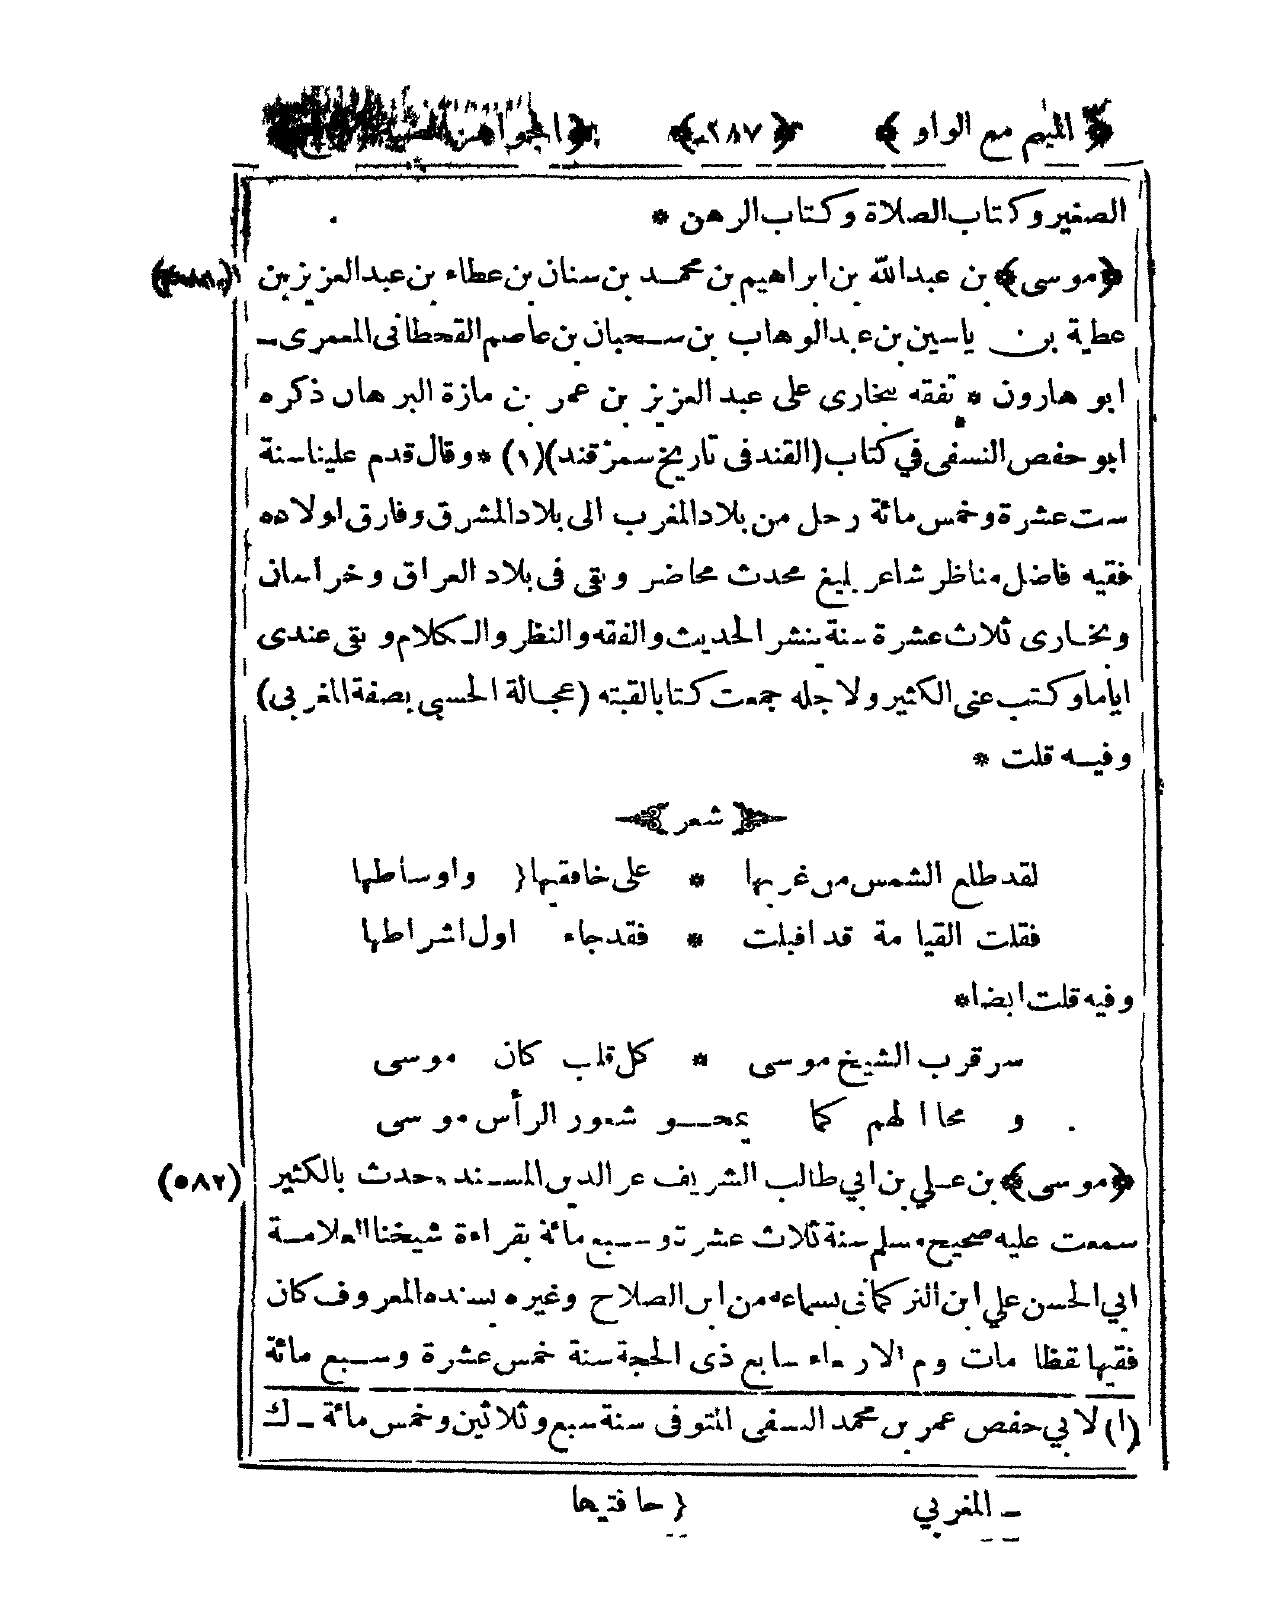 ﴿الميم مع الواو﴾ ﴿٢٨٧﴾ ﴿الجواهر
الصغير وكتاب الصلاة وكتاب الرهن *
﴿موسى﴾ بن عبدالله بن ابراهيم بن محمد بن سنان بن عطاء بن عبدالعزيز بن
عطية بن ياسين بن عبدالوهاب بن سحبان بن عاصم القحطانى المعمرى ـ
ابو هارون * تفقه ببخارى على عبد العزيز بن عمر بن مازة البرهان ذكره
ابو حفص النسفى في كتاب (القند فى تاريخ سمرقند)(١) * وقال قدم علينا سنة
ست عشرة وخمس مائة رحل من بلاد المغرب الى بلاد المشرق وفارق اولاده
فقيه فاضل مناظر شاعر بليغ محدث محاضر وبقى فى بلاد العراق وخراسان
وبخارى ثلاث عشرة سنة ينشر الحديث والفقه والنظر والكلام وبقى عندى
اياما وكتب عنى الكثير ولاجله جمعت كتابا لقبته (عجالة الحسبى بصفة المغربى)
وفيه قلت *
﴿شعر﴾
لقد طلع الشمس من غربها * على خافقيها{ واوساطها
فقلت القيامة قد اقبلت * فقد جاء اول اشراطها
وفيه قلت ايضا *
سر قرب الشيخ موسى * كل قلب كان موسى
و محا الهم كما يمحو شعور الرأس موسى
(٥٨٢) ﴿موسى﴾ بن علي بن ابي طالب الشريف عز الدين المسند حدث بالكثير
سمعت عليه صحيح مسلم سنة ثلاث عشرة وسبع مائة بقراءة شيخنا العلامة
ابي الحسن علي ابن التركمانى بسماعه من ابن الصلاح وغيره بسنده المعروف كان
فقيها يقظا مات يوم الاربعاء سابع ذى الحجة سنة خمس عشرة وسبع مائة
(١) لابي حفص عمر بن محمد النسفى المتوفى سنة سبع وثلاثين وخمس مائة ـ ك
ـ المغربي { حافتيها